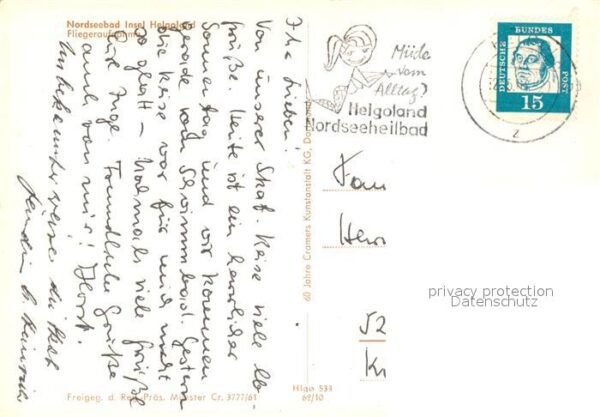 Nordseebad Insel Helgoland
Fliegeraufnahme
Ihr Lieben!
Von unserer Skat-Reise viele lb.
Grüße. Heute ist ein herrlicher
Sonnentag und wir kommen
gerade vom Schwimmbad. Gestern
die Reise war für mich nicht
so glatt – Nochmals viele Grüße
Eure Inge. Freundliche Grüße
auch von mir! Horst.
Unbekannterweise
Müde
vom
Alltag?
Helgoland
Nordseeheilbad
DEUTSCHE
BUNDES
POST
15
2
60 Jahre Cramers Kunstanstalt KG,
Frau
Herr
52
privacy protection
Datenschutz
Freigeg. d. Reg. Präs. Münster Cr. 3777/61
Hlgo 533
69/10